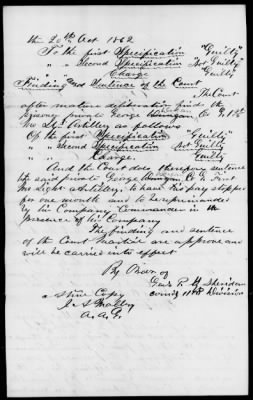 the 20th Oct 1862
To the first Specification "Guilty"
" " Second Specification Not Guilty"
" " Charge "Guilty"
Finding and Sentence of the Court
The Court
after mature deliberation find the
private George Co G 1st
Mo Lgt Artillery as follows
Of the first Specification "Guilty"
" " Second Specification Not Guilty
" " Charge. Guilty
And the Court does therefore sentence
him said private George Co G First
Mo Light Artillery, to have his pay stopped
for one month and to be reprimanded
by his Company Commander in the
presence of his Company
The finding and sentence
of the Court Martial are approved and
will be carried into effect
By Order of
Genl P. H. Sheridan
comdg 11th Division
A true Copy
A. A. G.